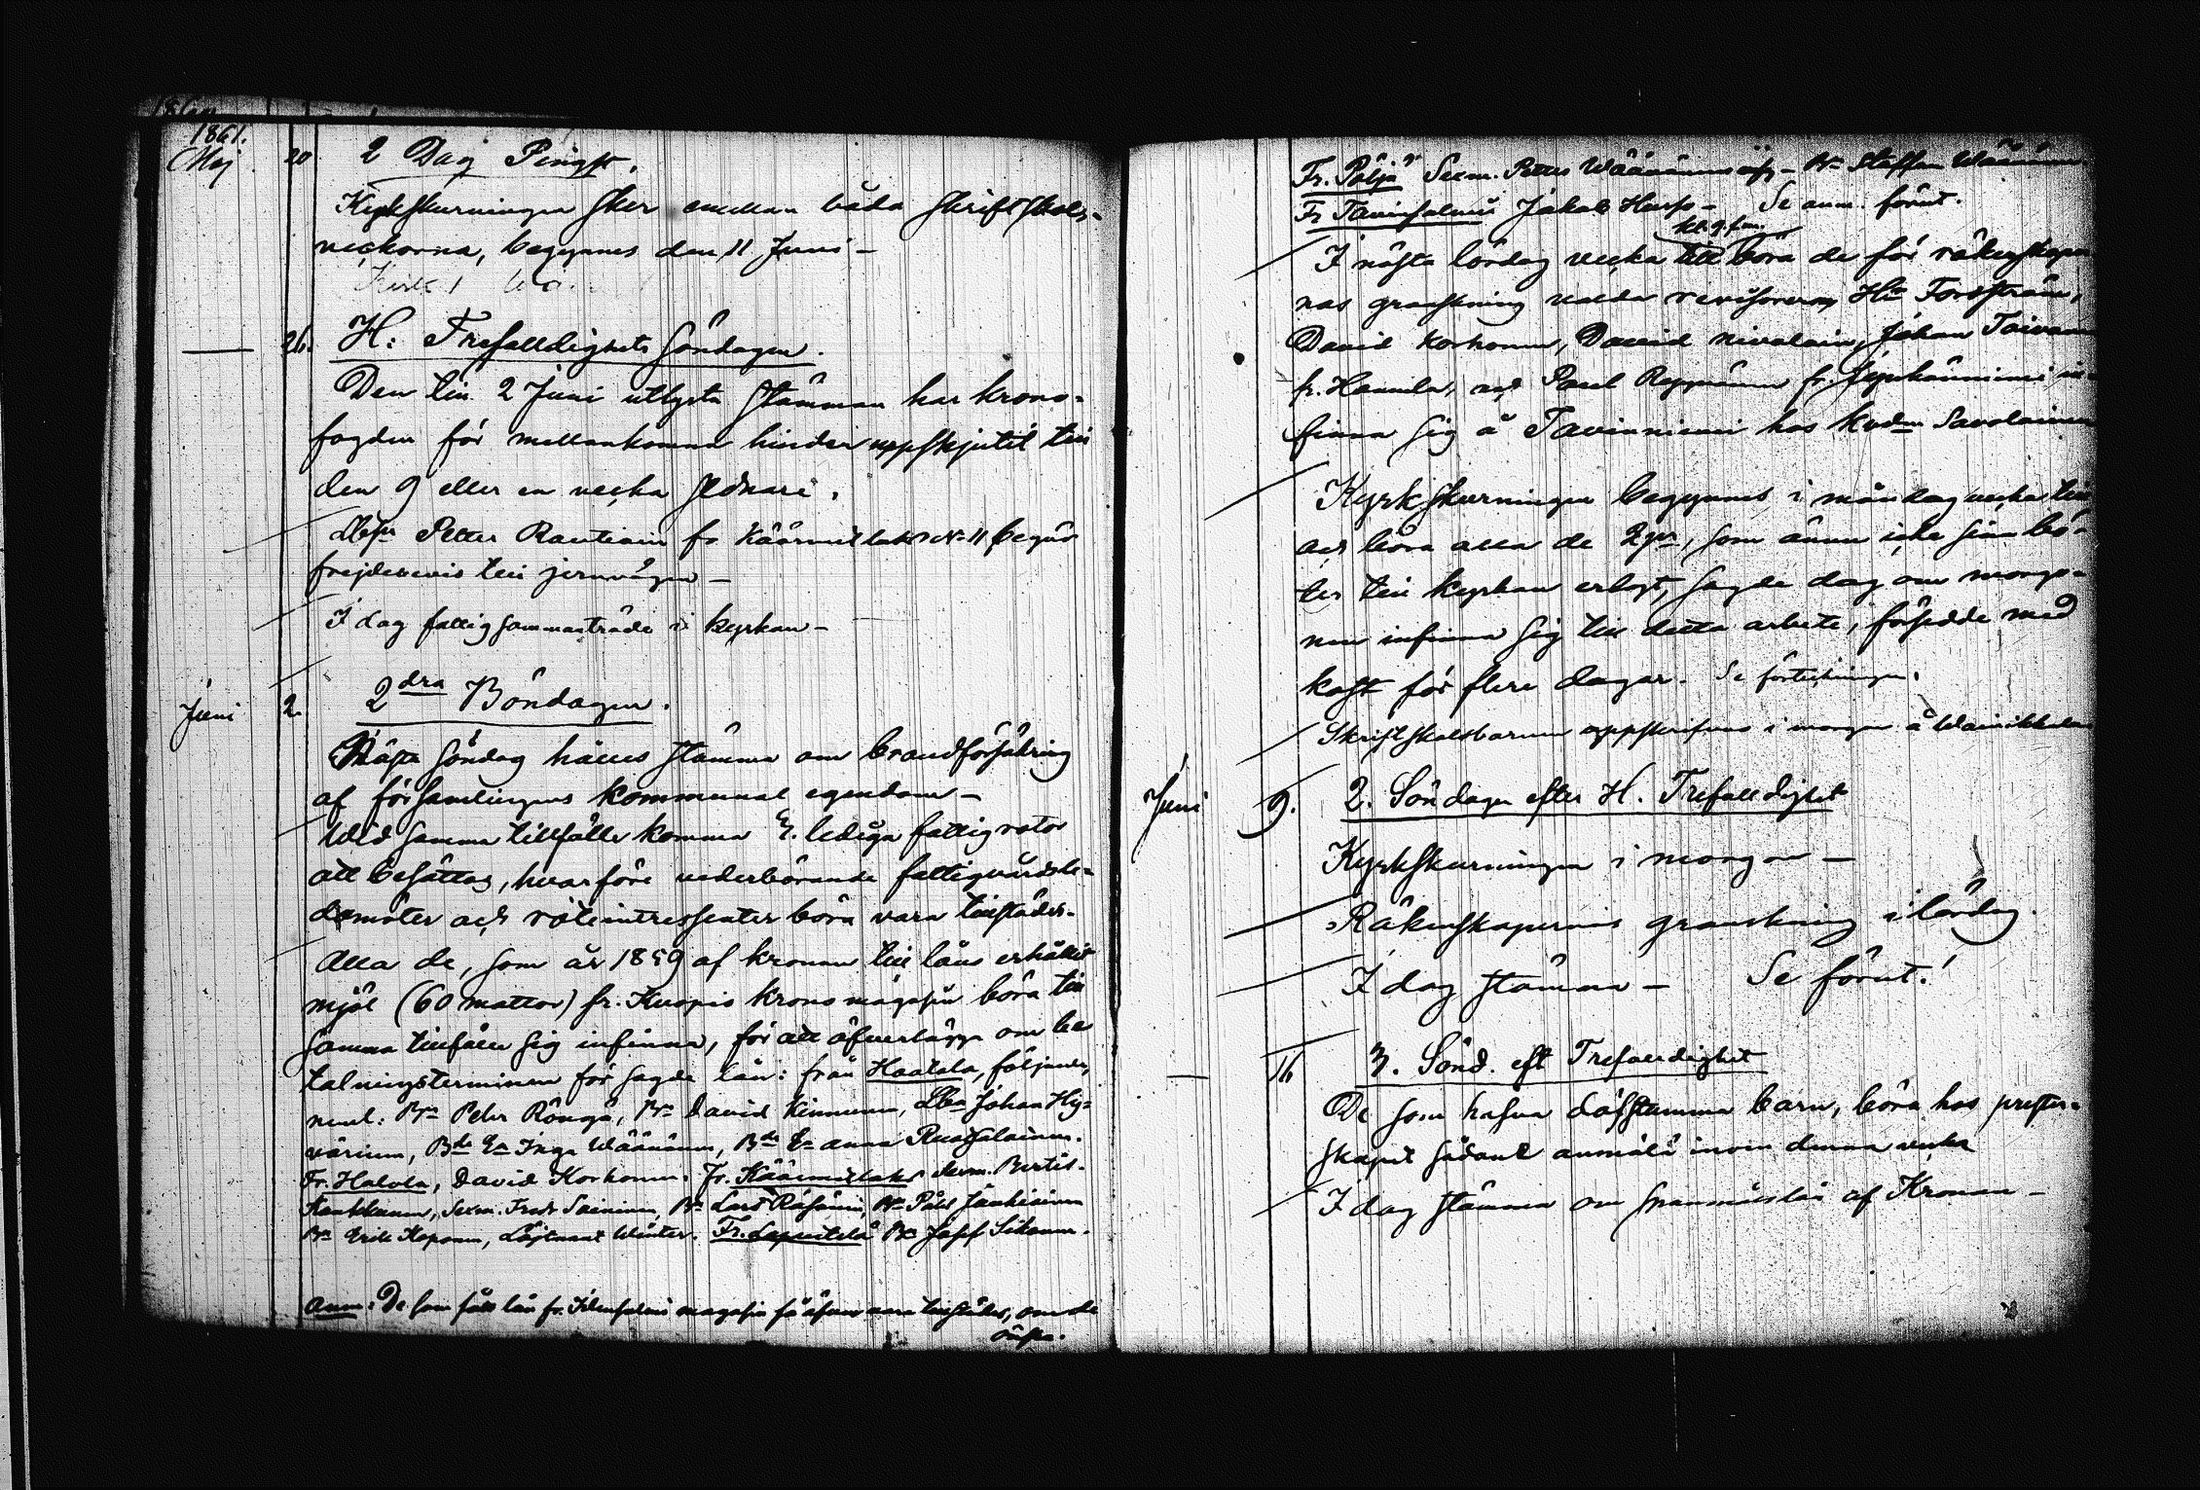 1861.
Maj 20 2 Dag Pingst.
Kyrkskurningen sker emellan båda skriftskols-
veckorna, begynnes den 11 Juni –
26. H: Trefalldighets Söndagen.
Den till 2 Juni utlysta stämman har krono-
fogden för mellankomna hinder uppskjutit till
den 9 eller en vecka sednare.
Petter Rautiain fr Käärmelaks No 11 begär
frejdebevis till jernvägen –
I dag fattigsammanträde i kyrkan –
Juni 2. 2dra Böndagen.
Nästa Söndag hålles stämma om brandförsäkring
af församlingens kommunal egendom –
Wid samma tillfälle komma 3. lediga fattigrotor
att besättas, hvarföre vederbörande fattigvårdsle-
damöter och roteintressenter böra vara tillstädes.
Alla de, som år 1859 af kronan till låns erhållit
mjöl (60 mattor) fr. Kuopio krono magasin böra till
samma tillfälle sig infinna, för att öfverlägga om be
talningsterminen för sagde lån: från Haatala, följande,
neml: Bn Petter Röngä, Bn David Kinnunen, Johan Hy-
värinen, Bde En Inga Wäänänen, Bde En Anna Ruotsalainen.
Fr. Halola, David Korhonen. Fr. Käärmelaks Sexm. Bertil.
Kankkunen, Sexm. Fredr Saininen, Bn Lars Räsänen, Bn Påhl Jauhiainen
Bn Erik Koponen, Löjtnant Winter. Fr. Lapvetelä Bn Josef Tikanen.
Anm: De som fått lån fr. magasin få äfven vara tillstädes, om de
önska.
Fr. Pöljä Sexm. Petter Wäänänen – Bn Staffan Wäänänen
Fr Taivisalmi Jakob Harp – Se anm. förut.
kl. 9. f.m.
I nästa lördag vecka till böra de för räkenskaper
nas granskning valda revisorerna, Hr Forsström,
David Korhonen, David Nivalain, Johan Toivanen
fr. Hamula, och Paul Reppänen fr. in-
finna sig å Tavinniemi hos Kvdm Savolainen
Kyrkskurningen begynnes i måndag vecka till
och böra alla de som ännu icke sina bö-
ter till kyrkan erlagt, sagde dag om morgo-
nen infinna sig till detta arbete, försedde med
kost för flere dagar. Se förteckningen.
Skriftskolsbarnen uppskrifvas i morgon å Wäinikkala
Juni 9. 2. Söndagen efter H. Trefalldighet
Kyrkskurningen i morgon –
Räkenskapernas granskning i lördag.
I dag stämma – Se förut!
16 3. Sönd. eft Trefalldighet
De som hafva döfstumma barn, böra hos prester-
skapet sådant anmäla inom denna vecka
I dag stämma om spannmålslån af Kronan –